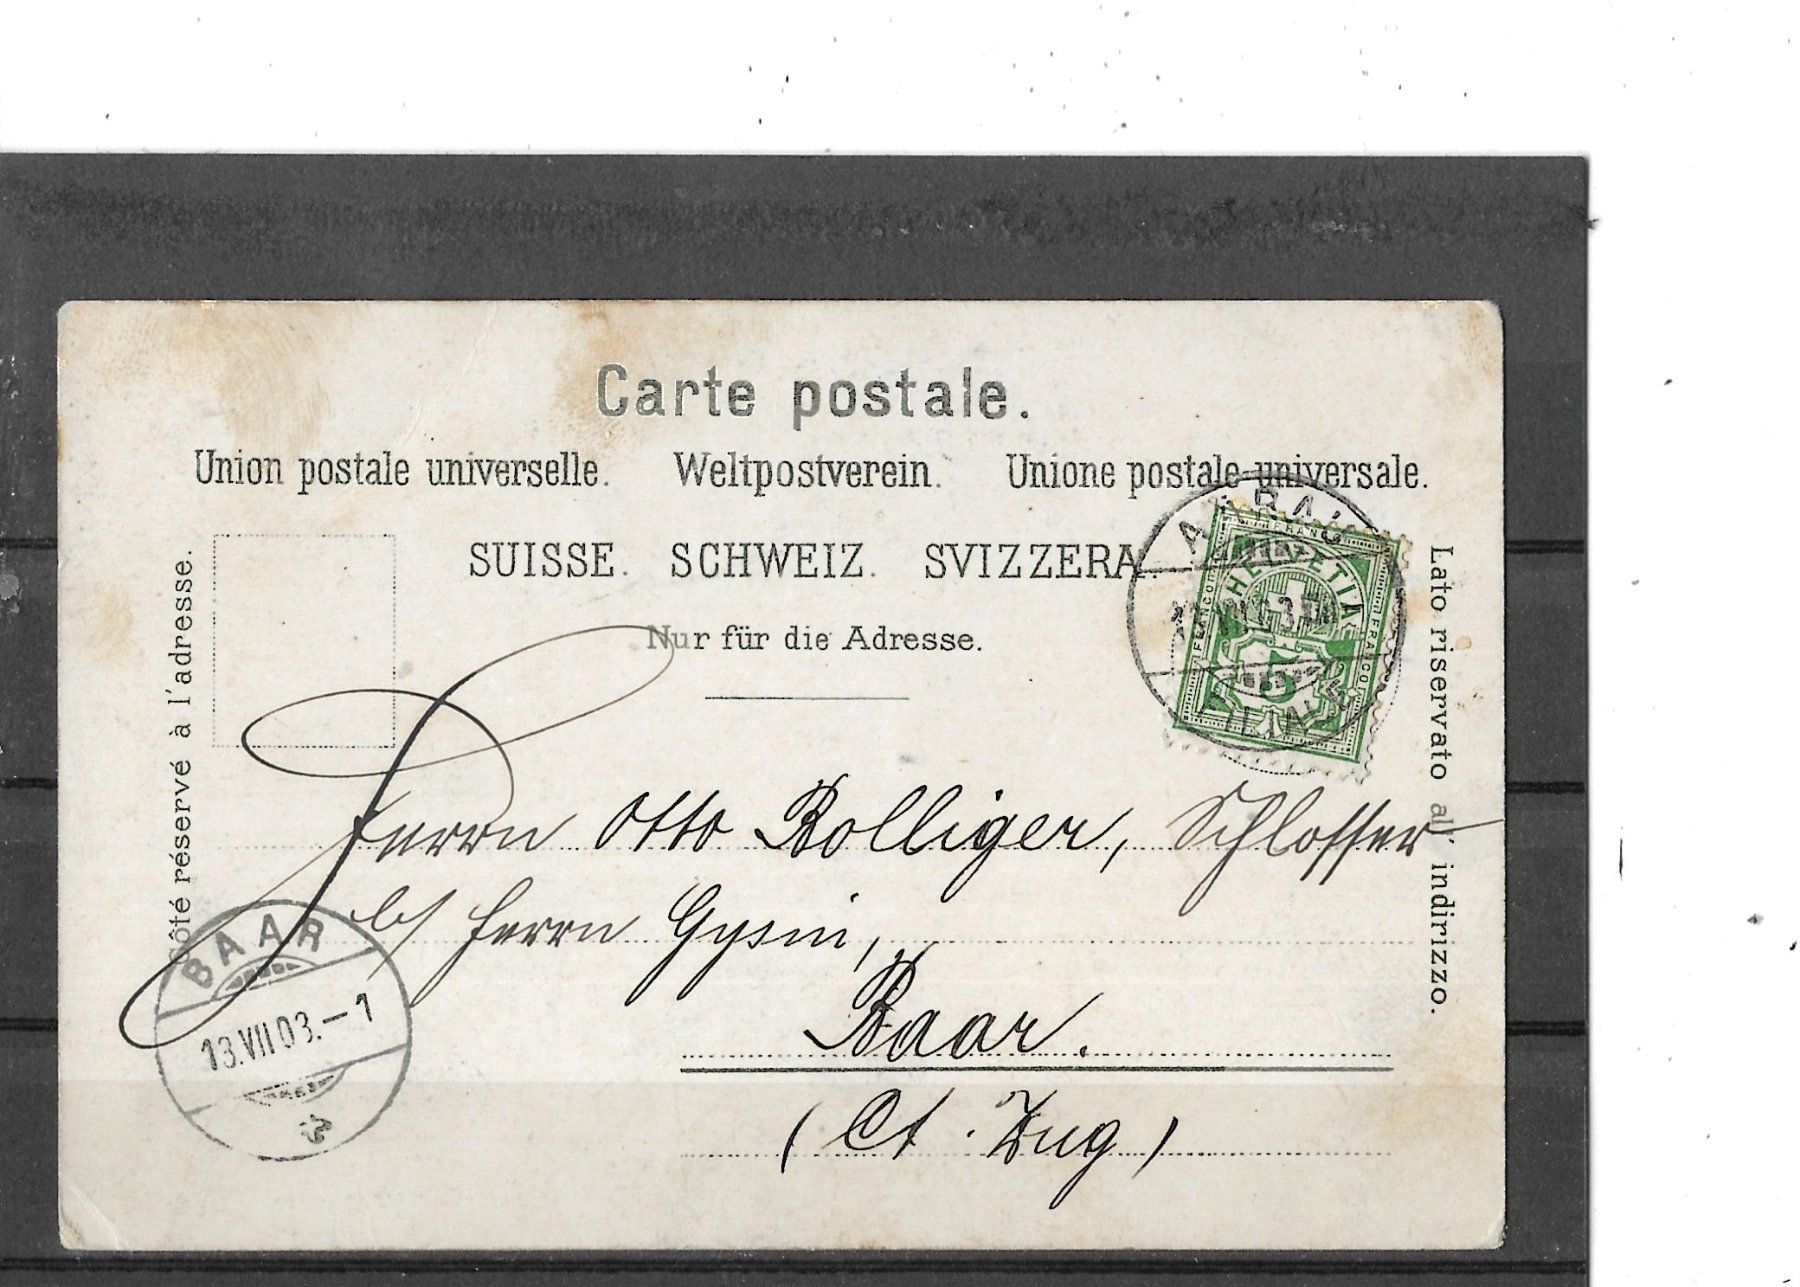 Carte postale.
Union postale universelle. Weltpostverein. Unione postale universale.
SUISSE. SCHWEIZ. SVIZZERA.
Nur für die Adresse.
Côté réservé à l'adresse.
Lato riservato all' indirizzo.
AARAU
FILIALE
FRANCO
HELVETIA
FRANCO
FRANCO
5
Herrn Otto Bolliger, Schlosser
b/ Herrn Gysin,
Baar.
(Ct. Zug)
BAAR
13.VII.03.–1